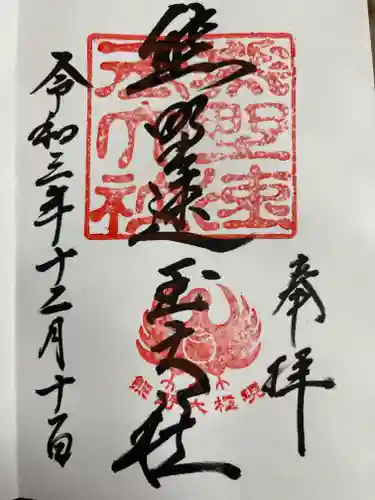 奉拝
熊野速玉大社
熊野速玉大社
熊野大権現
令和三年十二月十一日